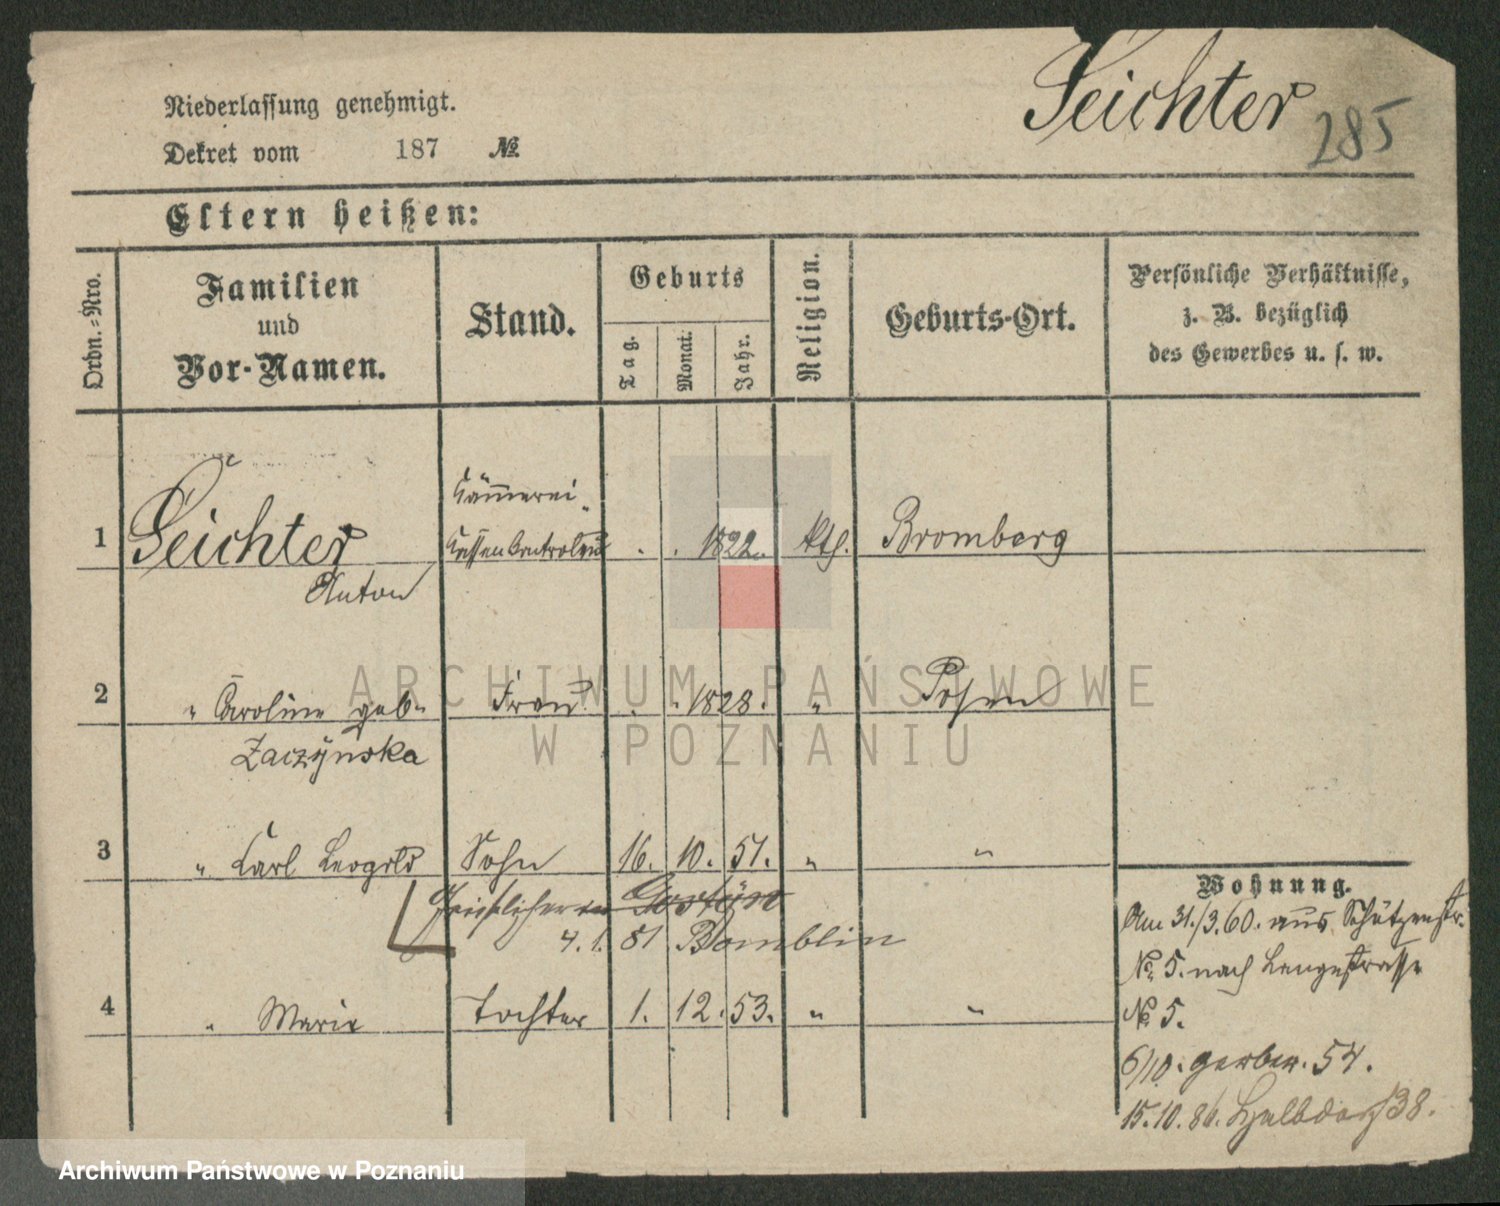 Seichter
285
Niederlassung genehmigt.
Dekret vom 187 №
Eltern heißen:
Ordn.-Nro.
Familien
und
Vor-Namen.
Stand.
Geburts
Tag.
Monat.
Jahr.
Religion.
Geburts-Ort.
Persönliche Verhältnisse,
z. B. bezüglich
des Gewerbes u. s. w.
Kämmerei
1 Seichter Kassen Controleur . . 1822. kth. Bromberg
Anton
2 " Caroline geb. Frau . . 1828. " Posen
Zaczynska
3 " Carl Leopold Sohn 16. 10. 51. " "
Geistlicher in Gostyn
4. 1. 81 Blomblin
4 " Marie Tochter 1. 12. 53. " "
Wohnung.
Am 31./3.60. aus Schützenstr.
№ 5. nach Langestrasse
№ 5.
6/10. gerber. 54.
15.10.86. Halbdorf 38.
ARCHIWUM PAŃSTWOWE
W POZNANIU
Archiwum Państwowe w Poznaniu